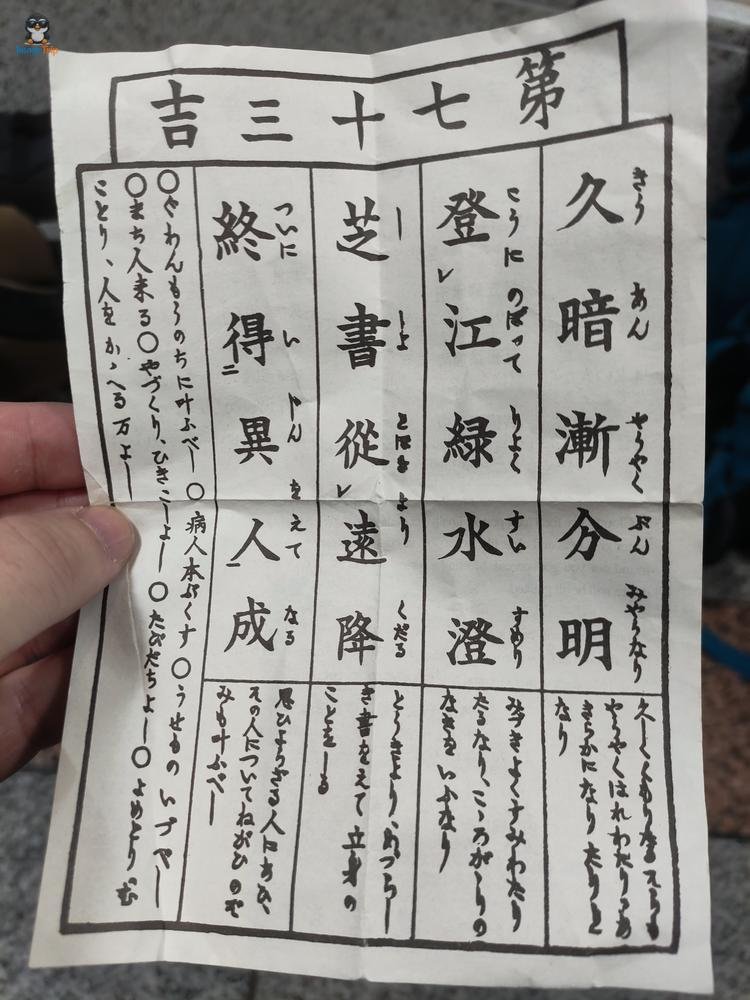 第七十三吉
きう あん やうやく ぶん みやうなり
久暗漸分明
久しくくもりたるそらも
やうやくはれわたり、あ
きらかになりたりと
なり
こうに のぼつて りよく すい すめり
登レ江緑水澄
みづきよくすみわたり
たるなり、こゝろがゝりの
なきをいふなり
し しよ とほき より くだる
芝書從レ遠降
とうきより、めづらし
き書をえて立身の
ことをしる
ついに い じん をえて なる
終得二異人一成
思ひよらざる人にあひ、
その人についてねがひのぞ
みも叶ふべし
○ぐわんもうのちに叶ふべし○病人本ぷくす○うせものいづべし
○まち人来る○やづくり、ひきこしよし○たびだちよし○よめとり、む
ことり、人をかゝへる万よし